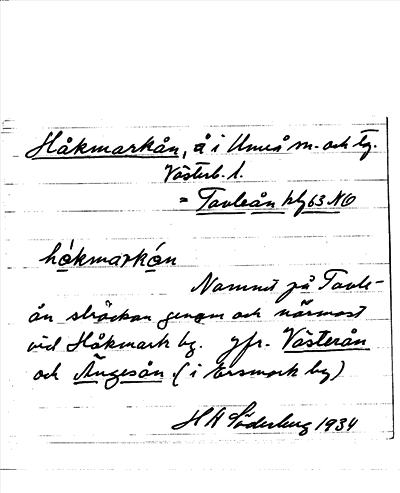 Håkmarkån, å i Umeå sn. och tg.
Västerb. l.
= Tavleån blg 63 NO
håkmarkån
Namnet på Tavle-
ån sträckan genom och närmast
vid Håkmark by. Jfr. Västerån
och Ängesån (i Ersmark by)
H A Söderberg 1934